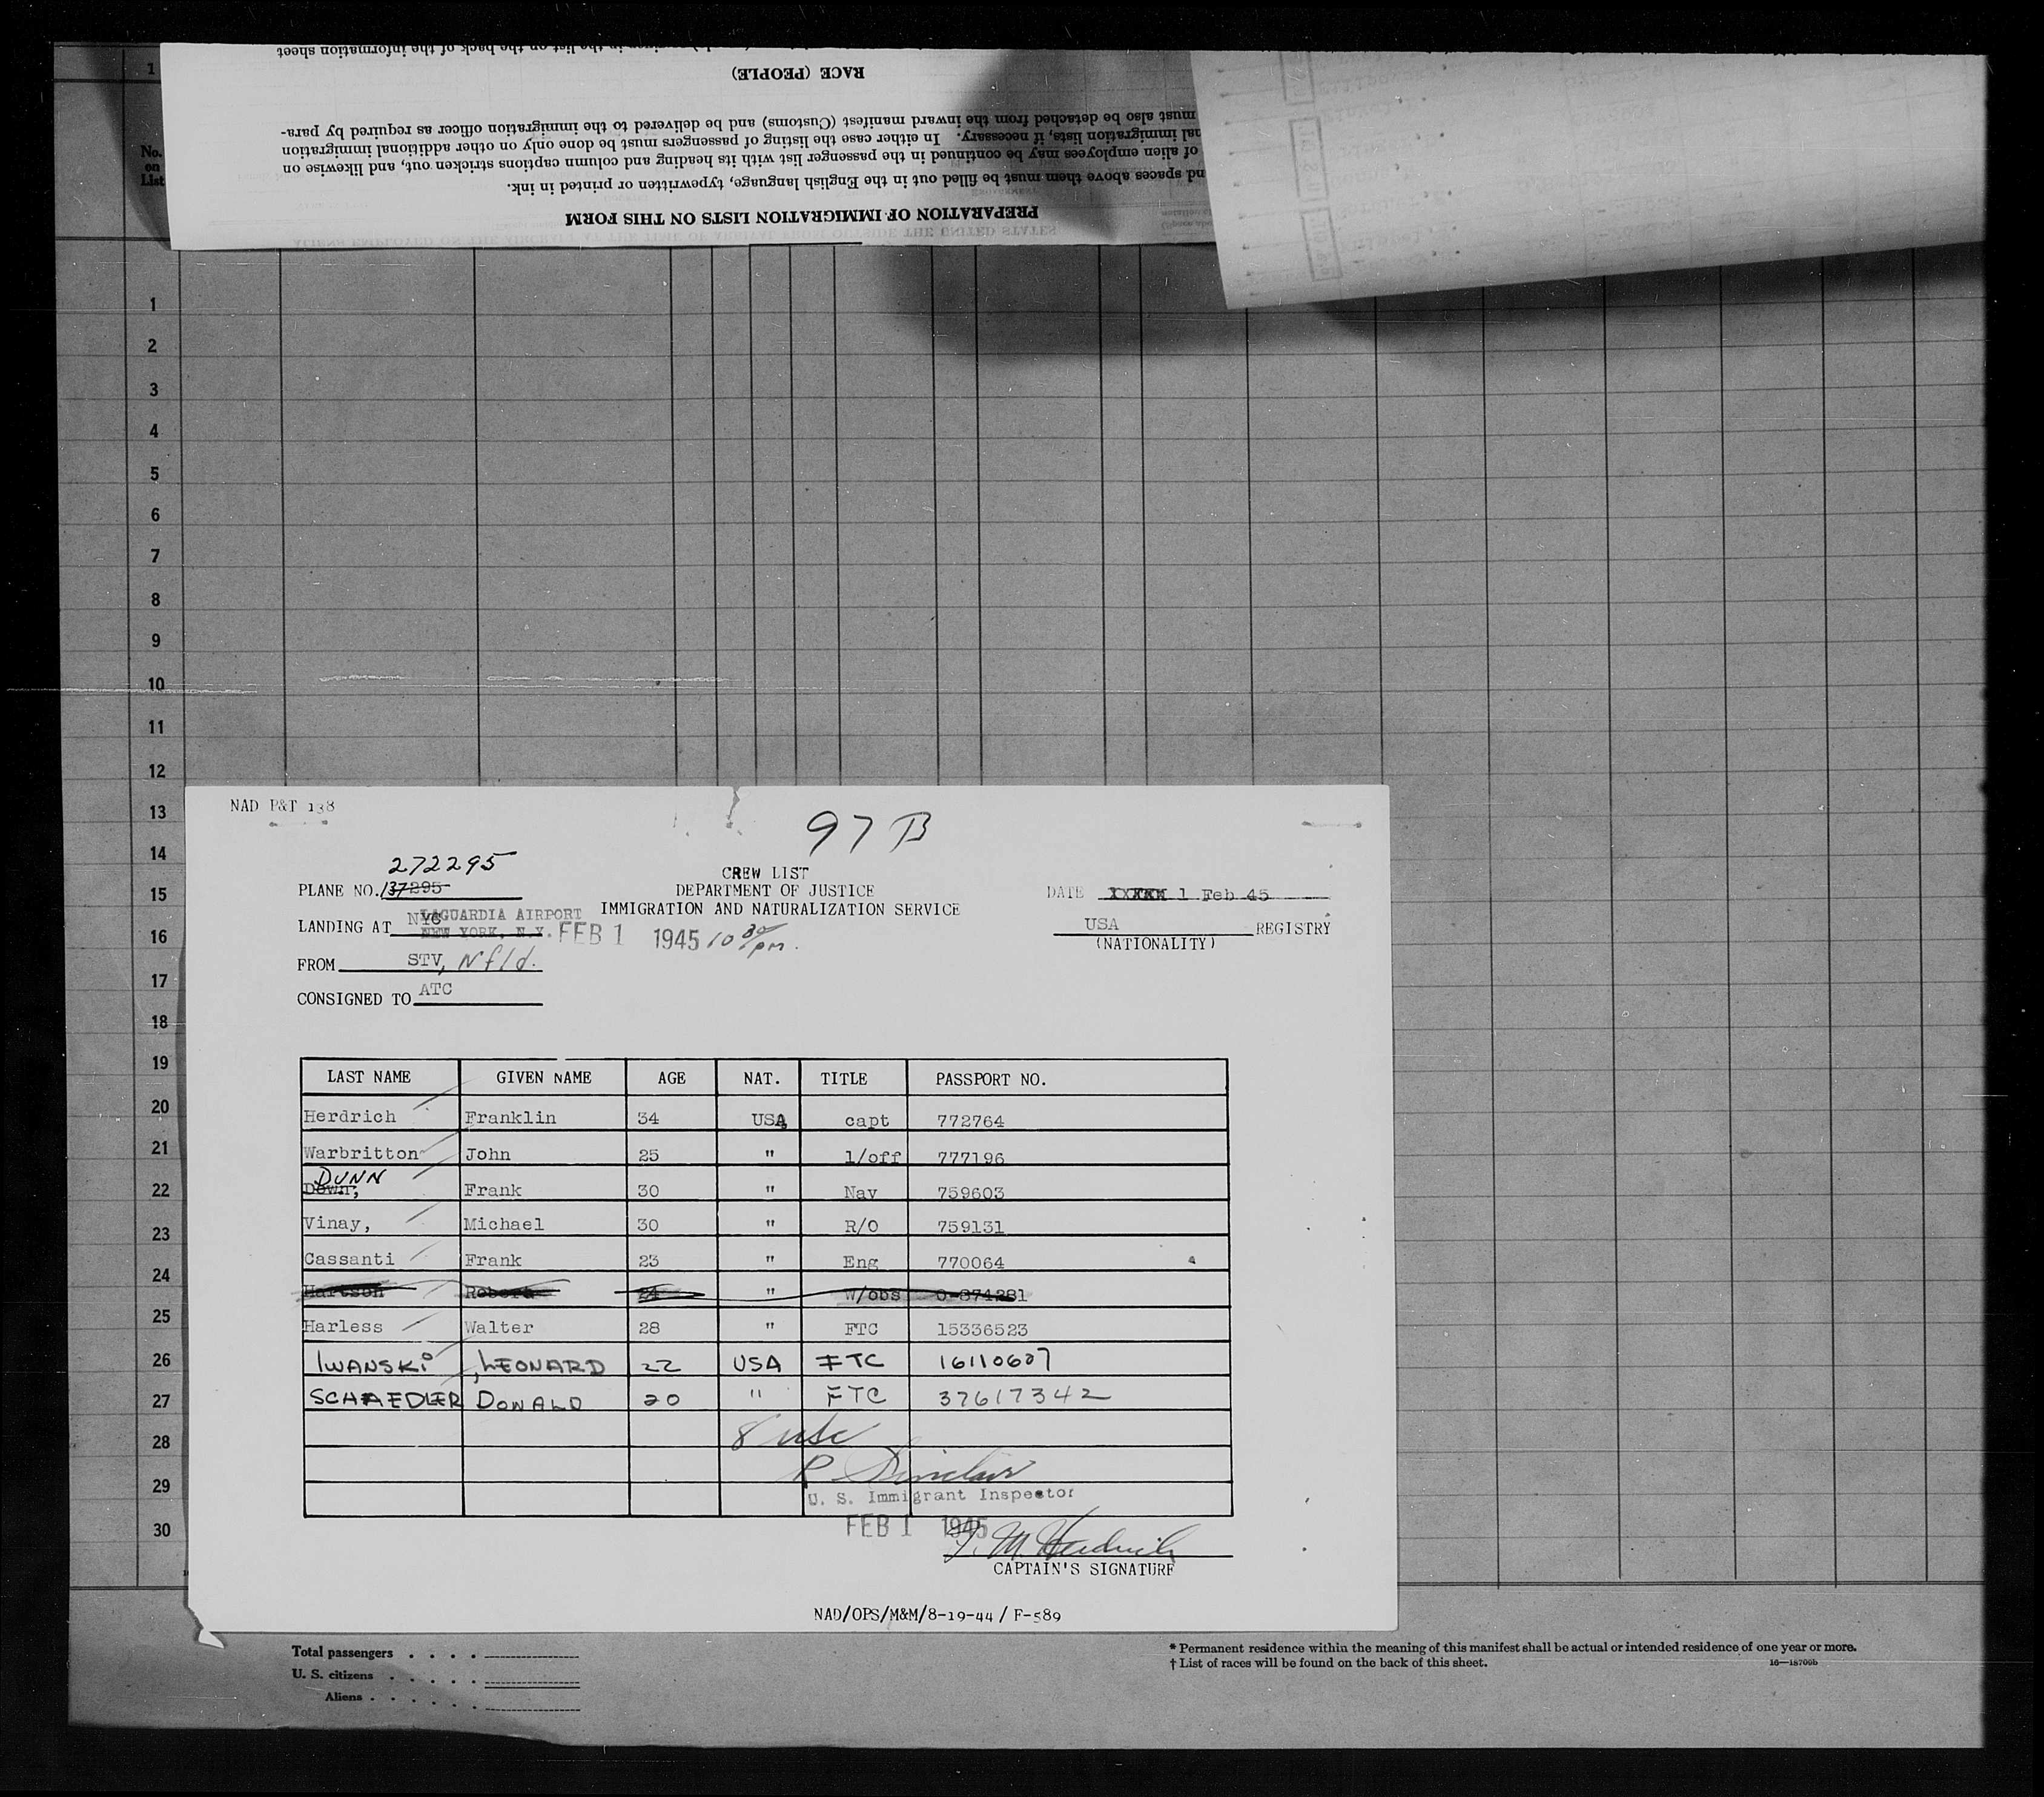 given in the list on the back of the information sheet
RACE (PEOPLE)
must also be detached from the inward manifest (Customs) and be delivered to the immigration officer as required by para-
nal immigration lists, if necessary. In either case the listing of passengers must be done only on other additional immigration
of alien employees may be continued in the passenger list with its heading and column captions stricken out, and likewise on
nd spaces above them must be filled out in the English language, typewritten or printed in ink.
PREPARATION OF IMMIGRATION LISTS ON THIS FORM
ALIENS EMPLOYED ON THE AIRCRAFT AT THE TIME OF ARRIVAL FROM OUTSIDE THE UNITED STATES
1
No. on List
1
2
3
4
5
6
7
8
9
10
11
12
13
14
15
16
17
18
19
20
21
22
23
24
25
26
27
28
29
30
NAD P&T 138
97 B
272295
CREW LIST
PLANE NO. 137295
DEPARTMENT OF JUSTICE
DATE 1 Feb 45
IMMIGRATION AND NATURALIZATION SERVICE
LANDING AT NYC LAGUARDIA AIRPORT
NEW YORK, N.Y. FEB 1 1945 10 30/pm.
USA REGISTRY
(NATIONALITY)
FROM STV, Nfld.
CONSIGNED TO ATC
LAST NAME GIVEN NAME AGE NAT. TITLE PASSPORT NO.
Herdrich Franklin 34 USA capt 772764
Warbritton John 25 " 1/off 777196
DUNN
Down, Frank 30 " Nav 759603
Vinay, Michael 30 " R/O 759131
Cassanti Frank 23 " Eng 770064
Hartson Robert 24 " w/obs 0-874281
Harless Walter 28 " FTC 15336523
IWANSKi , LEONARD 22 USA FTC 16110607
SCHAEDLER DONALD 20 " FTC 37617342
8 usc
R Sinclair
U. S. Immigrant Inspector
FEB 1 1945
F. M. Herdrich
CAPTAIN'S SIGNATURE
NAD/OPS/M&M/8-19-44 / F-589
Total passengers . . . .
U. S. citizens . . . . .
Aliens . . . . . .
* Permanent residence within the meaning of this manifest shall be actual or intended residence of one year or more.
† List of races will be found on the back of this sheet.
16—18709b